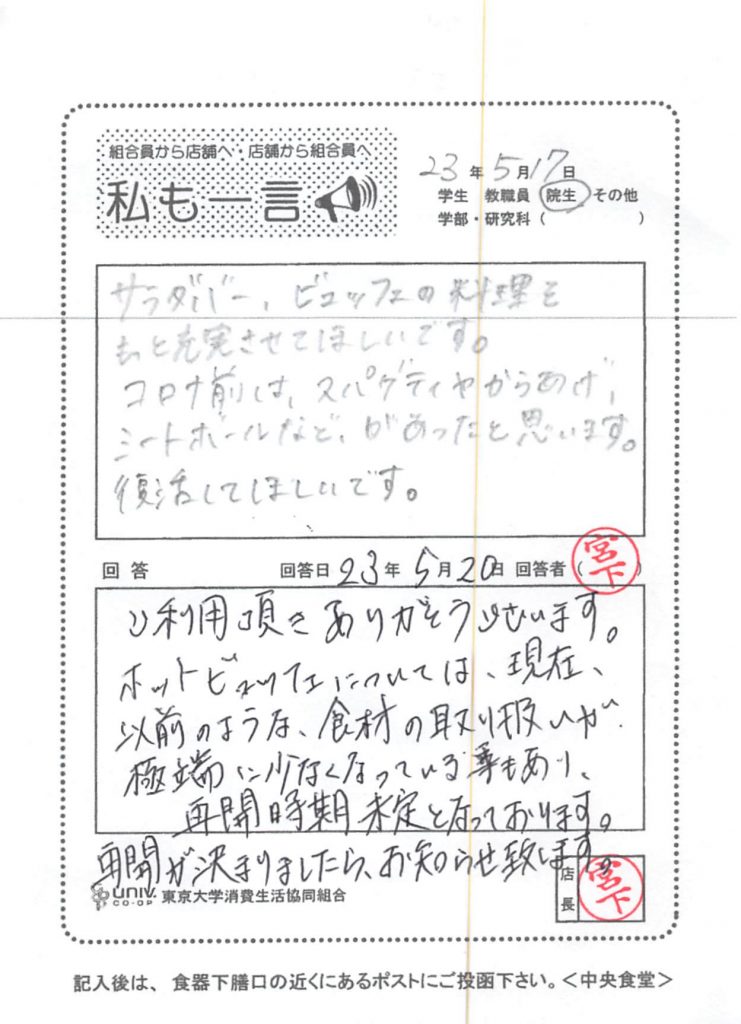 組合員から店舗へ・店舗から組合員へ
私も一言
23年5月17日
学生 教職員 院生 その他
学部・研究科( )
サラダバー、ビュッフェの料理を
もっと充実させてほしいです。
コロナ前は、スパゲティやからあげ、
ミートボールなど、があったと思います。
復活してほしいです。
回答 回答日 23年5月20日 回答者(宮下)
ご利用頂きありがとうございます。
ホットビュッフェについては、現在、
以前のような、食材の取り扱いが
極端に少なくなっている事もあり、
再開時期未定となっております。
再開が決まりましたら、お知らせ致します。
UNIV. CO-OP 東京大学消費生活協同組合
店長 宮下
記入後は、食器下膳口の近くにあるポストにご投函下さい。<中央食堂>